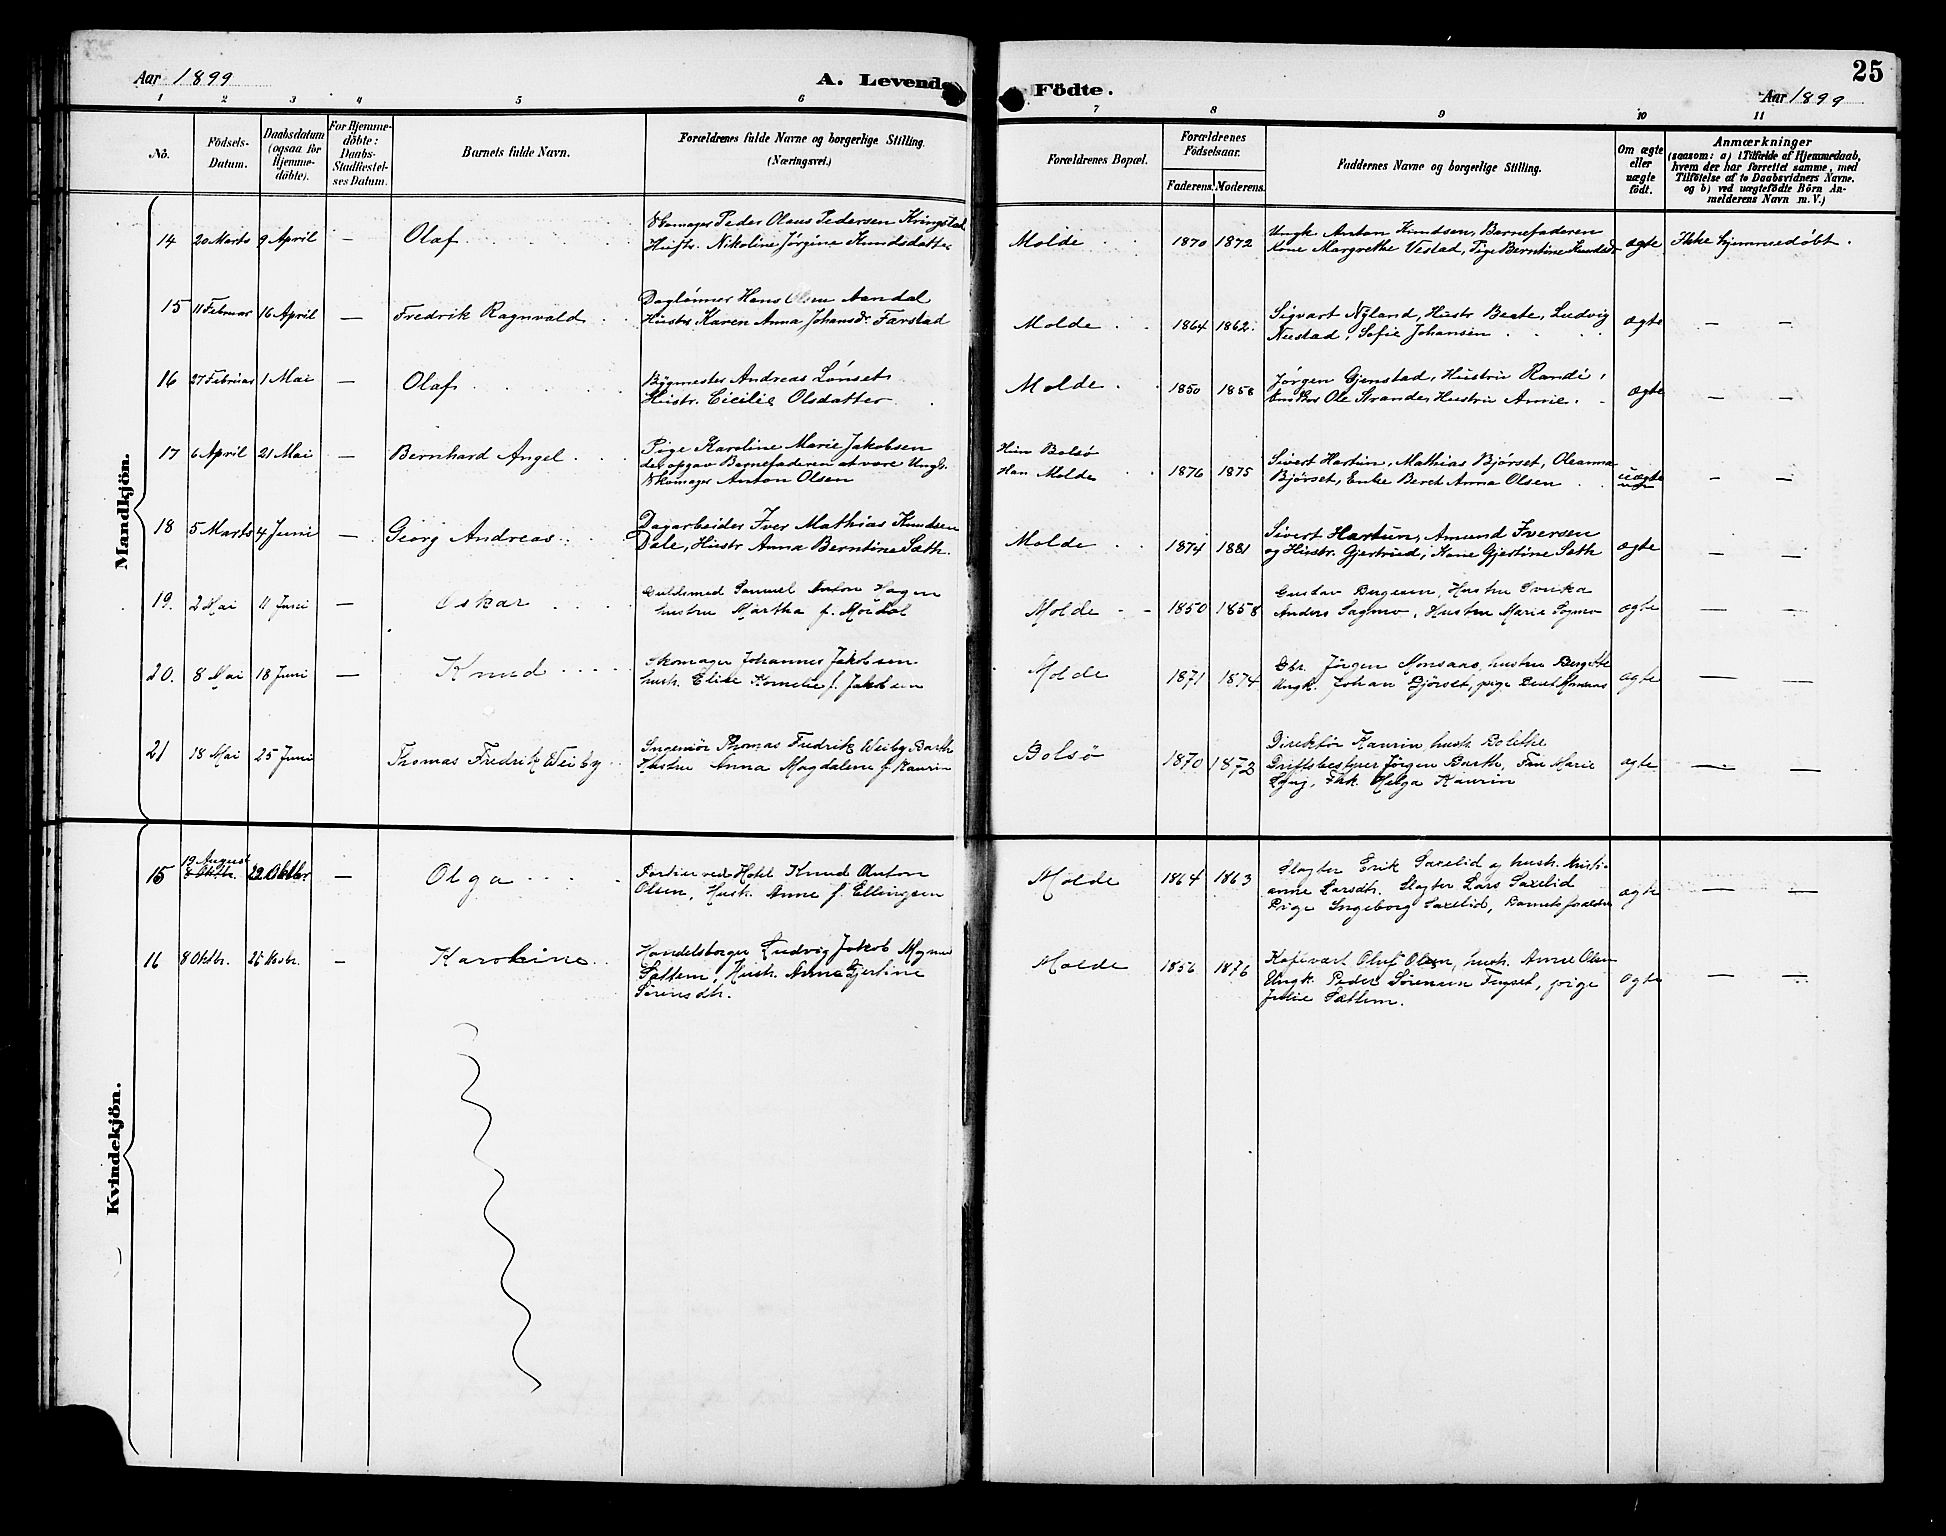 Aar 1899
A. Levende
Födte.
25
Aar 1899
1 2 3 4 5 6 7 8 9 10 11
No.
Födsels-Datum.
Daabsdatum (ogsaa for Hjemme-døbte).
For Hjemme-døbte: Daabs-Stadfæstel-ses Datum.
Barnets fulde Navn.
Forældrenes fulde Navne og borgerlige Stilling.
(Næringsvei.)
Forældrenes Bopæl.
Forældrenes Födselsaar.
Faderens. Moderens.
Faddernes Navne og borgerlige Stilling.
Om ægte eller uægte födt.
Anmærkninger
(saasom: a) i Tilfælde af Hjemmedaab,
hvem der har forrettet samme, med
Tilføielse af to Daabsvidners Navne.
og b) ved uægtefödte Börn An-
melderens Navn m. V.)
Mandkjön.
14 20 Marts 9 April — Olaf
Skomager Peder Olaus Pedersen Kringstad
Hustr. Nikoline Jørgine Knudsdatter
Molde 1870 1872
Ungk. Anton Knudsen, Barnefaderen
Kone Margrethe Vestad, Pige Berntine Knudsd
ægte Ikke hjemmedøbt.
15 11 Februar 16 April — Fredrik Ragnvald
Daglønner Hans Olsen Aandal
Hustr Karen Anna Johansdr. Farstad
Molde 1864 1862.
Sigvart Nyland, Hustr Beate, Ludvig
Nustad, Sofie Johansen
ægte — —
16 27 Februar 1 Mai — Olaf
Bygmester Andreas Lønset
Hustr. Cicilie Olsdatter
Molde 1850 1858
Jørgen Gjenstad, Hustru Randi,
Ole Strande, Hustru Anne.
ægte — —
17 6 April 21 Mai — Bernhard Angel
Pige Karoline Marie Jakobsen
der opgav Barnefaderen at være Ungk.
Skomager Anton Olsen
Hun Bolsø
Han Molde 1876 1875
Sivert Hartun, Mathias Bjørset, Oleanna
Bjørset, Enke Beret Anna Olsen
uægte — —
18 5 Marts 4 Juni — Georg Andreas
Dagarbeider Iver Mathias Knudsen
Dale, Hustr Anna Berntine Sæth.
Molde 1874 1881
Sivert Hartun, Amund Iversen
og Hustr. Gjertrud, Kone Gjertine Sæth
ægte — —
19. 2 Mai 11 Juni — Oskar
Guldsmed Samuel Anton Hagen
hustru Martha f. Moldal
Molde 1850 1858
Gustav Hustru
Anders Sogmo, Hustru Marie Sogmo
ægte — —
20. 8 Mai 18 Juni — Knud
Skomager Johannes Jakobsen
hustr. Elise Kornelie f. Jakobsen
Molde 1871 1874
Jørgen Monsaas, hustru Bergitte
Ungk. Johan Bjørset, pige Beret Monsaas
ægte — —
21 18 Mai 25 Juni Thomas Fredrik Weiby
Ingeniør Thomas Fredrik Weiby Barth
Hustru Anna Magdalene f. Kaurin
Bolsø 1870 1872
Direktør Kaurin, hustr. Bolette
Driftsbestyrer Jørgen Barth, Fru Marie
Lyng, Frk. Helga Kaurin
ægte — —
Kvindekjön.
15 19 August 8 Oktbr. 22 Oktbr — Olga
Portier ved Hotel Knud Anton
Olsen, Hustr. Anne f. Ellingsen
Molde 1864 1863
Slagter Erik Saxelid og hustr. Kristi-
anne Larsdtr. Slagter Lars Saxelid
Pige Ingeborg Saxelid, Barnets forældre
ægte — —
16 8 Oktbr. 26 Novbr. — Karoline
Handelsborger Ludvig Jakob
Sættem, Hustr. Anne Gjertine
Sørensdtr.
Molde 1856 1876
Kafevært Oluf Olsen, hustr. Anne Olsen
Ungk. Peder Sørensen, pige
Julie Sættem.
ægte — —